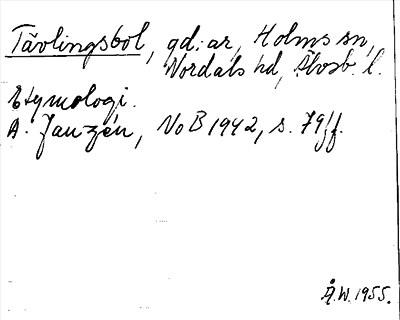 Tävlingsbol, gd:ar, Holms sn,
Nordals hd, Älvsb. l.
Etymologi.
A. Janzén, NoB 1942, s. 79 ff.
Å.W. 1955.